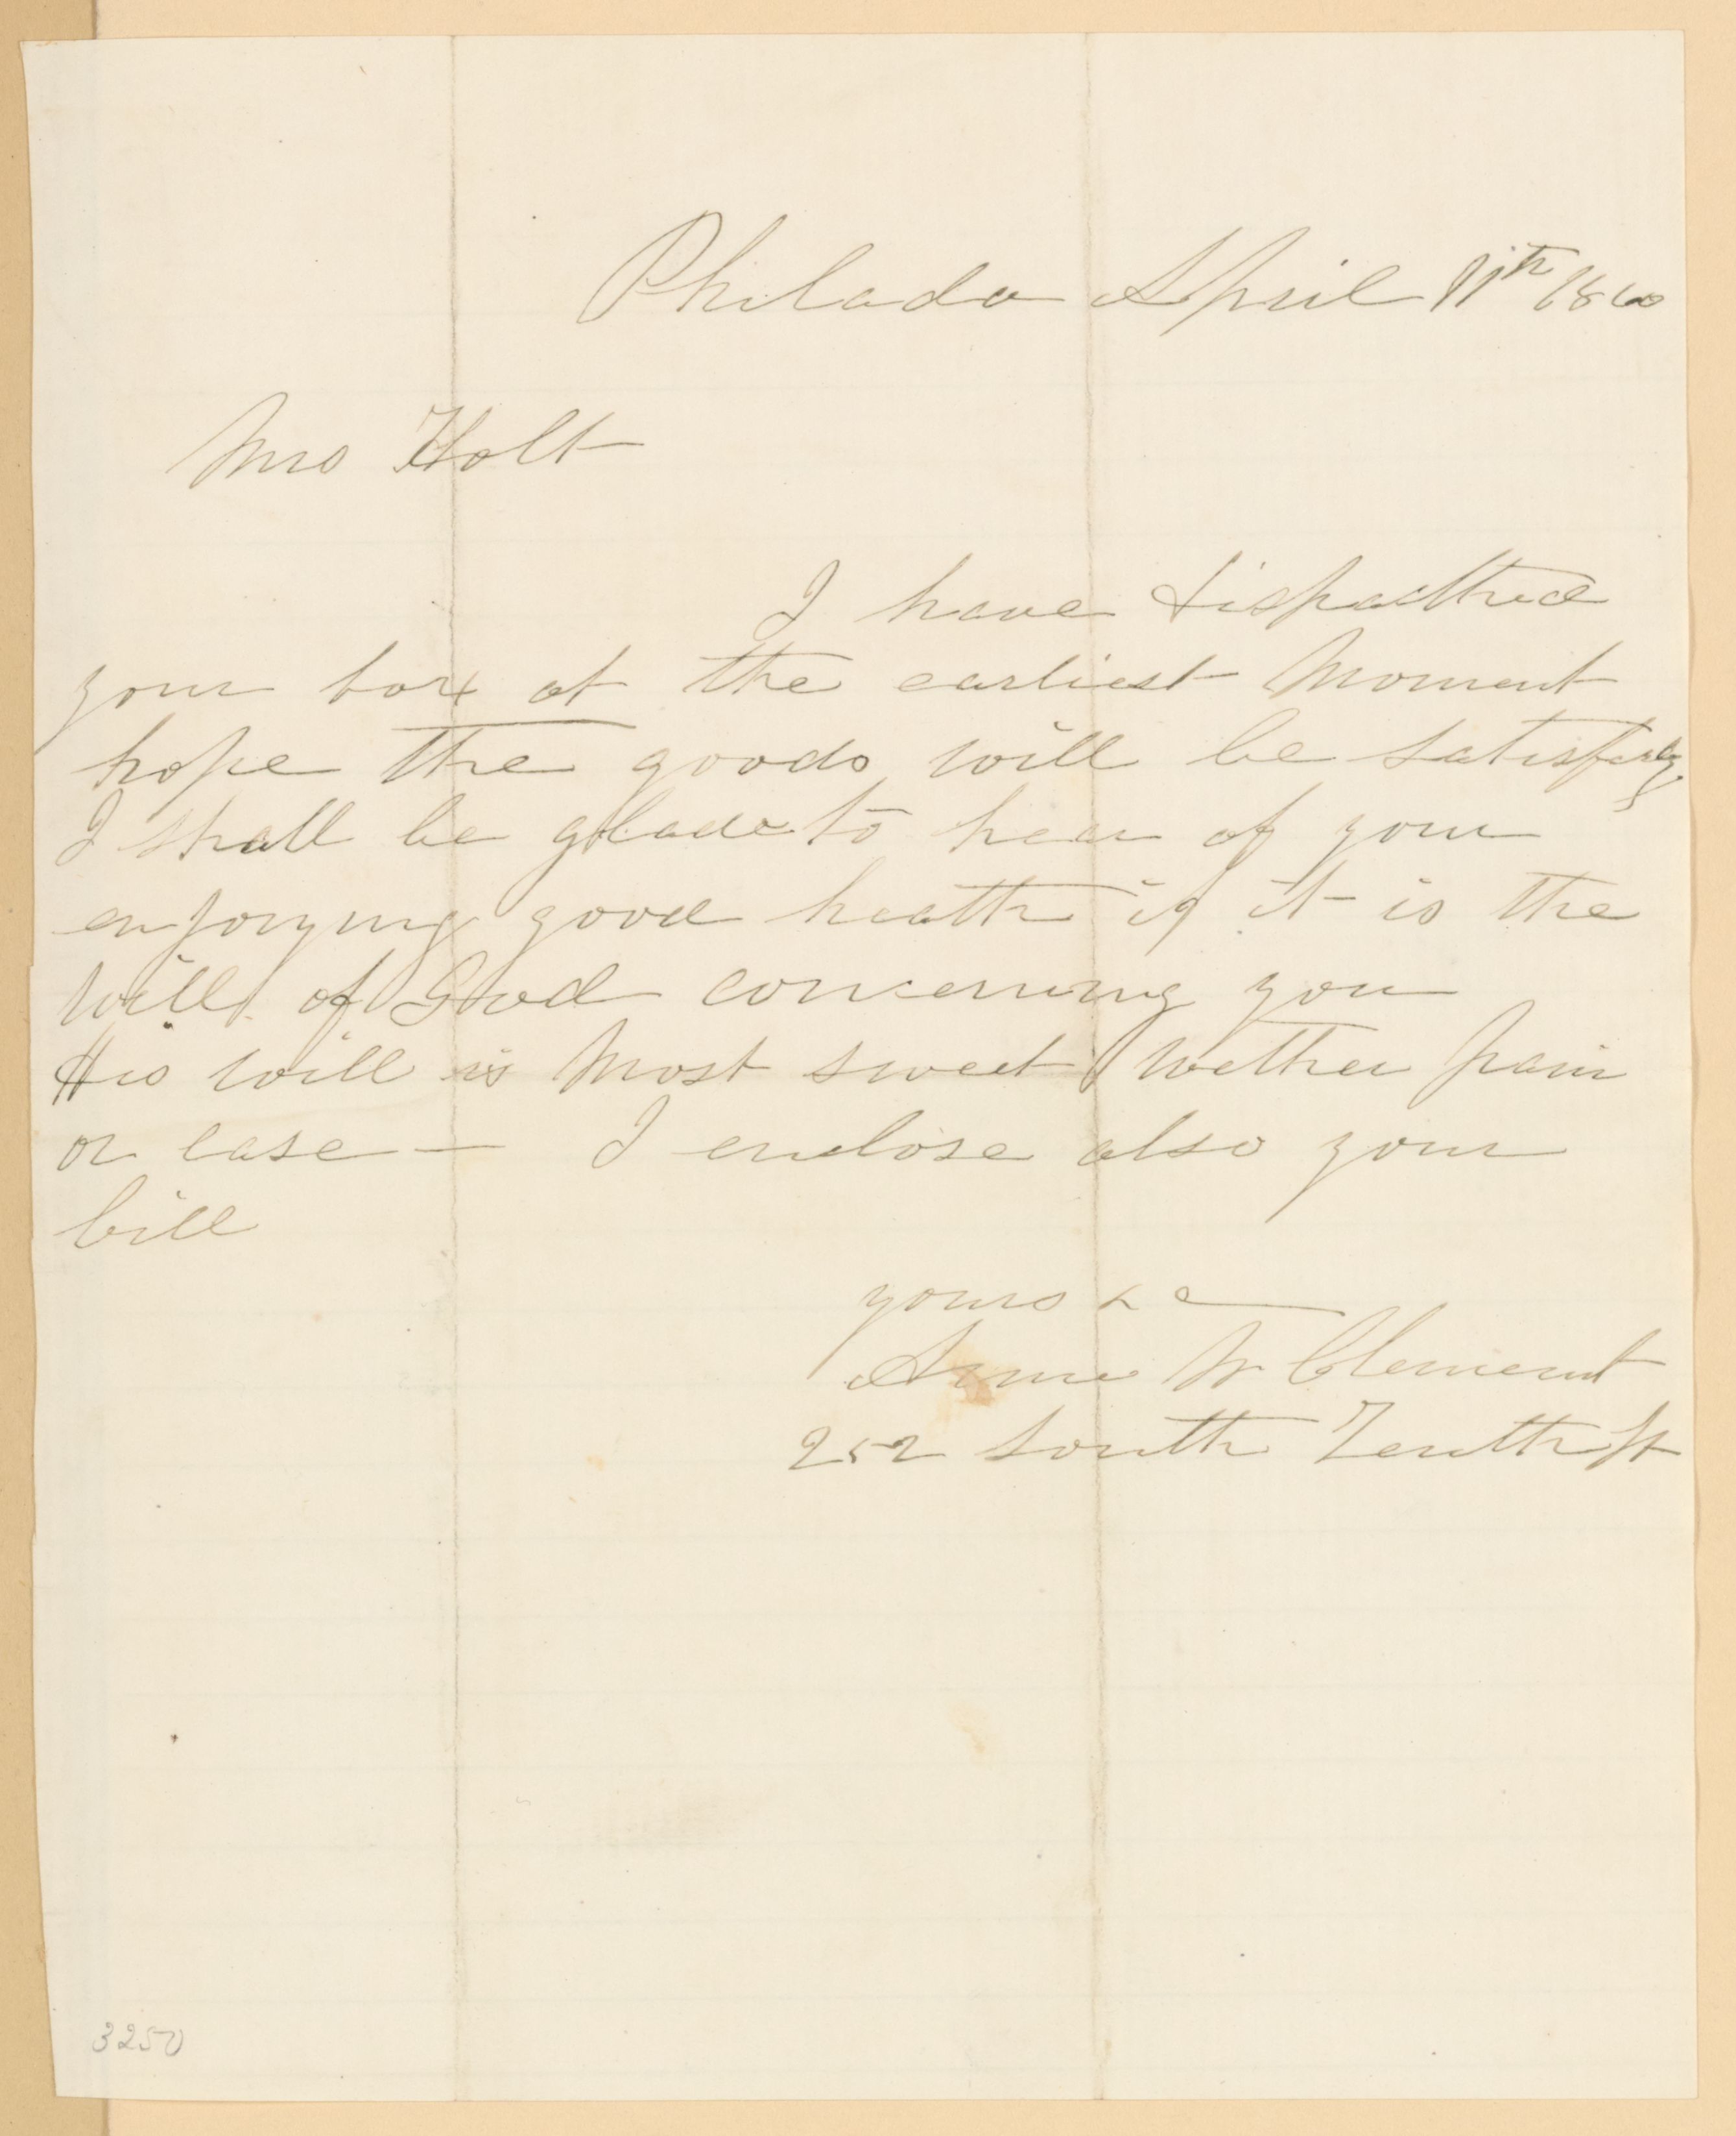 Philada April 11th 1860
Mrs Holt
I have dispatched
your box at the earliest moment
hope the goods will be satisfacty
I shall be glad to hear of your
enjoying good health if it is the
will of God concerning you
His will is most sweet wether pain
or ease — I enclose also your
bill
yours &c
Anna W Clement
252 South Tenth St
3250